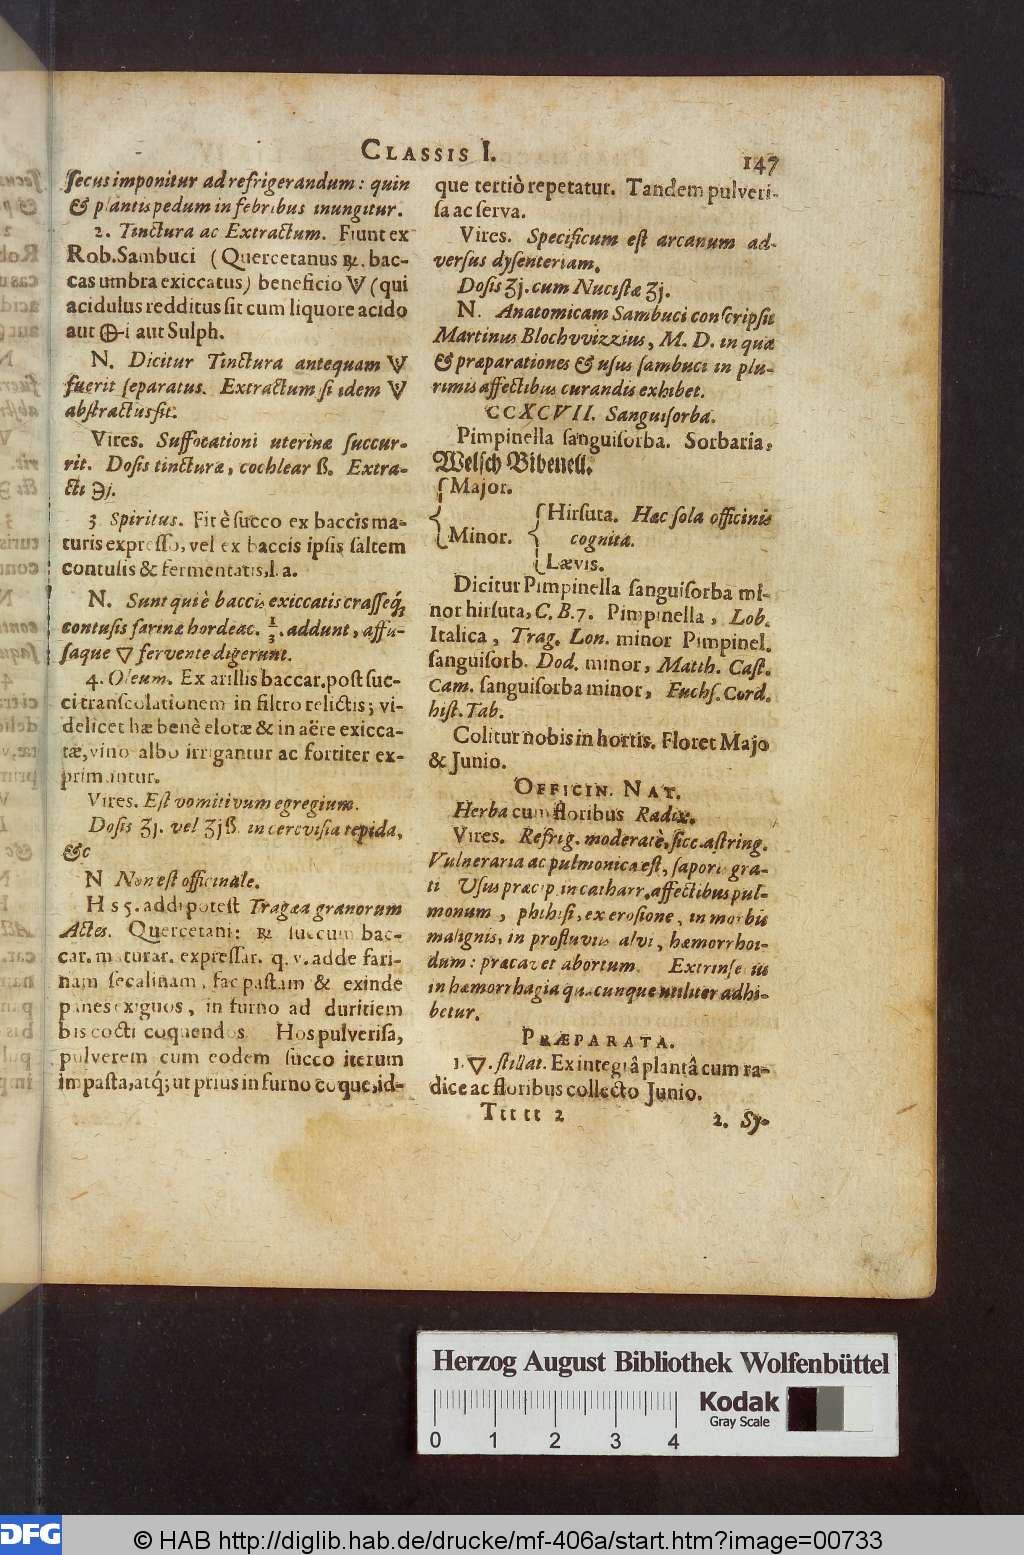 CLASSIS I.
147
secus imponitur ad refrigerandum: quin
& plantis pedum in febribus inungitur.
2. Tinctura ac Extractum. Fiunt ex
Rob. Sambuci (Quercetanus ℞. bac-
cas umbra exiccatus) beneficio (qui
acidulus redditus sit cum liquore acido
aut i aut Sulph.
N. Dicitur Tinctura antequam
fuerit separatus. Extractum si idem
abstractus sit.
Vires. Suffocationi uterinæ succur-
rit. Dosis tincturæ, cochlear ß. Extra-
cti ℈j.
3 Spiritus. Fit è succo ex baccis ma-
turis expresso, vel ex baccis ipsis saltem
contusis & fermentatis, l. a.
N. Sunt qui è baccis exiccatis crasseq́;
contusis farinæ hordeac. 1/3. addunt, affu-
saque 🜄 fervente digerunt.
4. Oleum. Ex arillis baccar. post suc-
ci transcolationem in filtro relictis; vi-
delicet hæ benè elotæ & in aëre exicca-
tæ, vino albo irrigantur ac fortiter ex-
primuntur.
Vires. Est vomitivum egregium.
Dosis ʒj. vel ʒjß. in cerevisia tepida,
&c
N Non est officinale.
H s 5. addi potest Tragæa granorum
Actes. Quercetani: ℞ succum bac-
car. maturar. expressar. q. v. adde fari-
nam secalinam, fac pastam & exinde
panes exiguos, in furno ad duritiem
bis cocti coquendos. Hos pulverisa,
pulverem cum eodem succo iterum
impasta, atq́; ut prius in furno coque, id-
que tertiò repetatur. Tandem pulveri-
sa ac serva.
Vires. Specificum est arcanum ad-
versus dysenteriam.
Dosis ʒj. cum Nucistæ ʒj.
N. Anatomicam Sambuci conscripsit
Martinus Blochvvizzius, M. D. in qua
& præparationes & usus sambuci in plu-
rimis affectibus curandis exhibet.
CCXCVII. Sanguisorba.
Pimpinella sanguisorba. Sorbaria,
Welsch Bibenell.
Major.
Hirsuta. Hæc sola officinis
Minor. cognita.
Lævis.
Dicitur Pimpinella sanguisorba mi-
nor hirsuta, C. B. 7. Pimpinella, Lob.
Italica, Trag. Lon. minor Pimpinel.
sanguisorb. Dod. minor, Matth. Cast.
Cam. sanguisorba minor, Fuchs. Cord.
hist. Tab.
Colitur nobis in hortis. Floret Majo
& Junio.
OFFICIN. NAT.
Herba cum floribus Radix.
Vires. Refrig. moderatè, sicc. astring.
Vulneraria ac pulmonica est, saporis gra-
ti Usus præcip. in catharr. affectibus pul-
monum, phthisi, ex erosione, in morbis
malignis, in profluviis alvi, hæmorrhoi-
dum: præcavet abortum. Extrinse iu
in hæmorrhagia quacunque utiliter adhi-
betur.
PRÆPARATA.
1. 🜄. stillat. Ex integrâ plantâ cum ra-
dice ac floribus collecto Junio.
Ttttt 2
2. Sy-
Herzog August Bibliothek Wolfenbüttel
0 1 2 3 4
Kodak
Gray Scale
DFG
© HAB http://diglib.hab.de/drucke/mf-406a/start.htm?image=00733